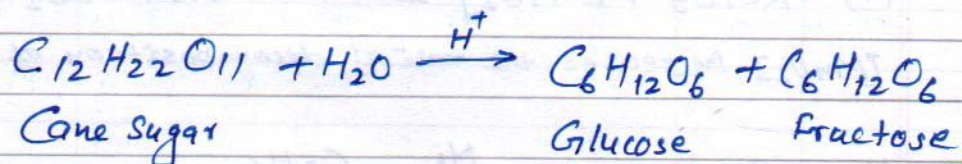 C12H22O11 + H2O —H⁺→ C6H12O6 + C6H12O6
Cane Sugar Glucose Fructose